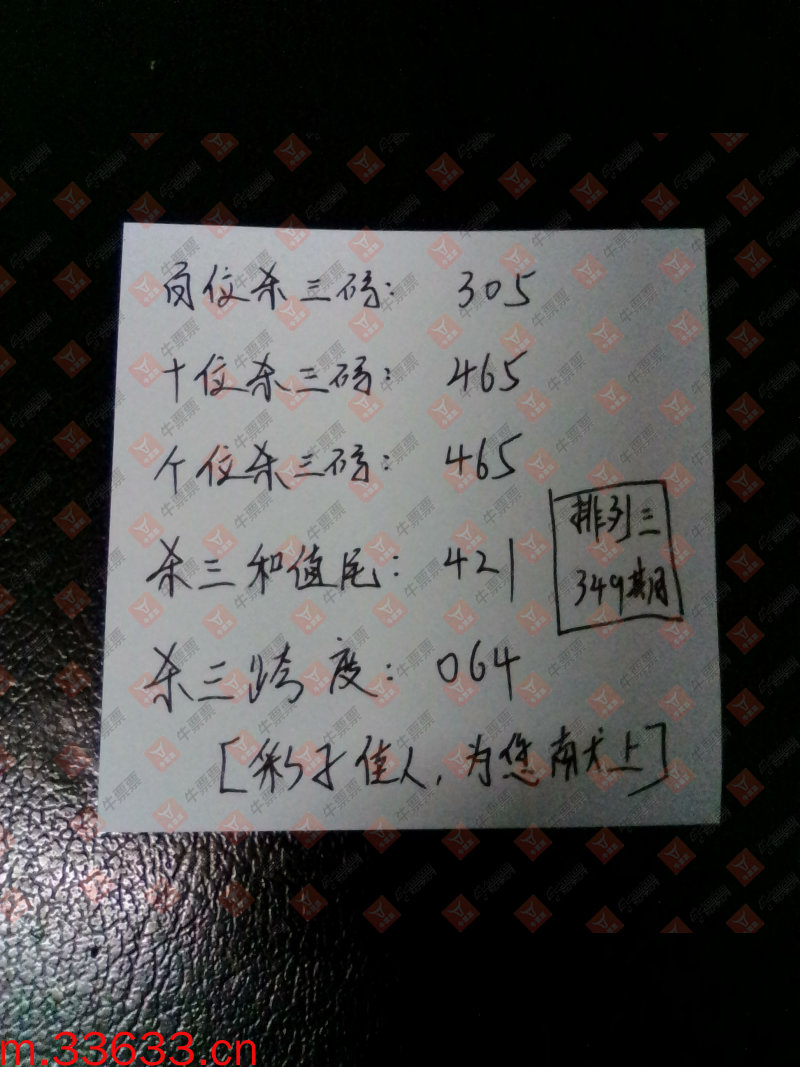 百位杀三码: 305
十位杀三码: 465
个位杀三码: 465
杀三和值尾: 421
排列三
349期
杀三跨度: 064
[彩子佳人,为您献上]
牛票票
m.33633.cn